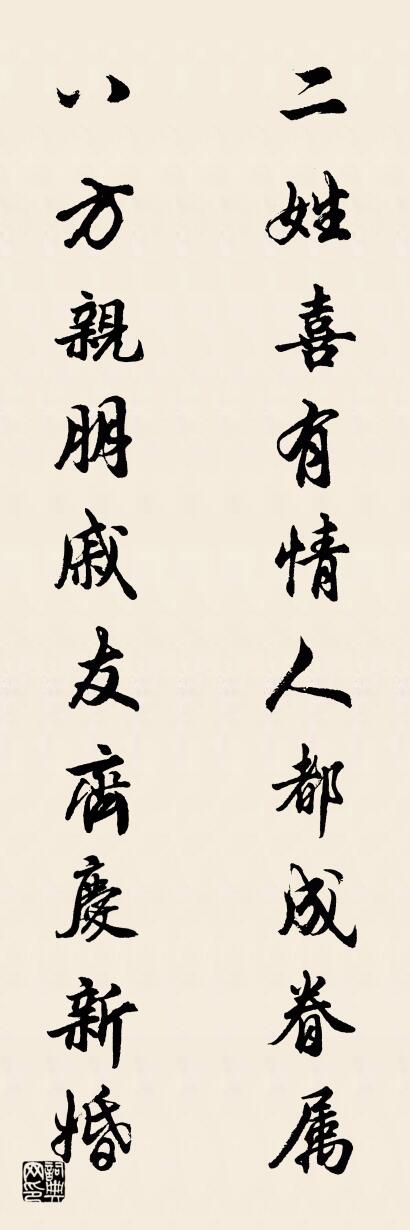 二姓喜有情人都成眷属
八方親朋戚友齊慶新婚
詞典網印